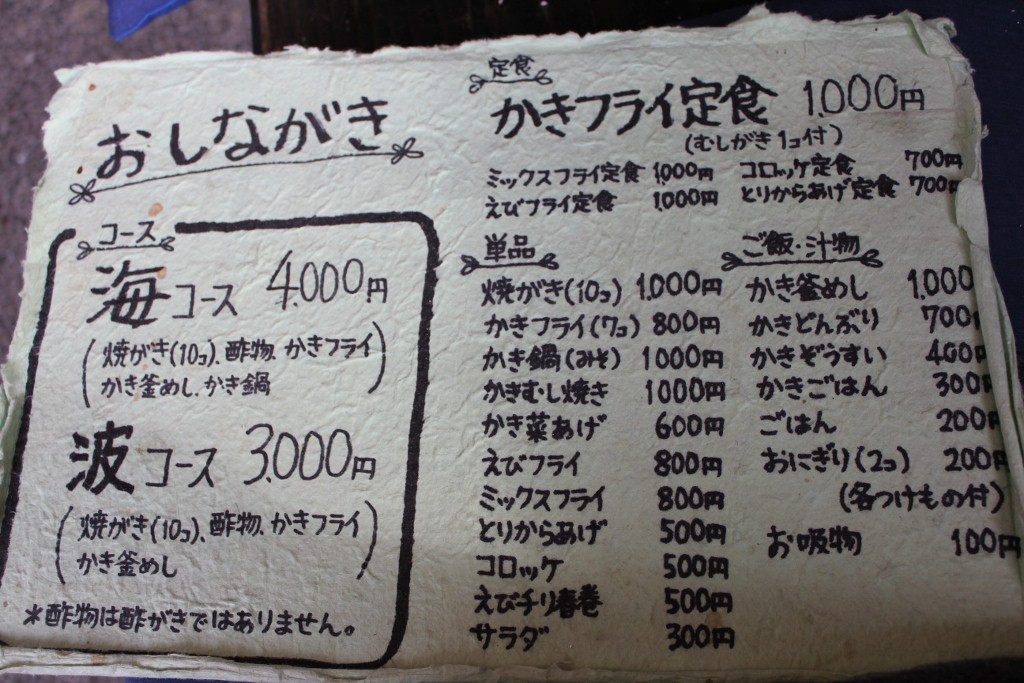 おしながき
コース
海コース 4.000円
(焼がき(10コ)、酢物、かきフライ
かき釜めし、かき鍋)
波コース 3.000円
(焼がき(10コ)、酢物、かきフライ
かき釜めし)
*酢物は酢がきではありません。
定食
かきフライ定食 1.000円
(むしがき1コ付)
ミックスフライ定食 1.000円 コロッケ定食 700円
えびフライ定食 1.000円 とりからあげ定食 700円
単品
焼がき(10コ) 1.000円
かきフライ(7コ) 800円
かき鍋(みそ) 1000円
かきむし焼き 1000円
かき菜あげ 600円
えびフライ 800円
ミックスフライ 800円
とりからあげ 500円
コロッケ 500円
えびチリ春巻 500円
サラダ 300円
ご飯・汁物
かき釜めし 1,000
かきどんぶり 700円
かきぞうすい 400円
かきごはん 300円
ごはん 200円
おにぎり(2コ) 200円
(各つけもの付)
お吸物 100円